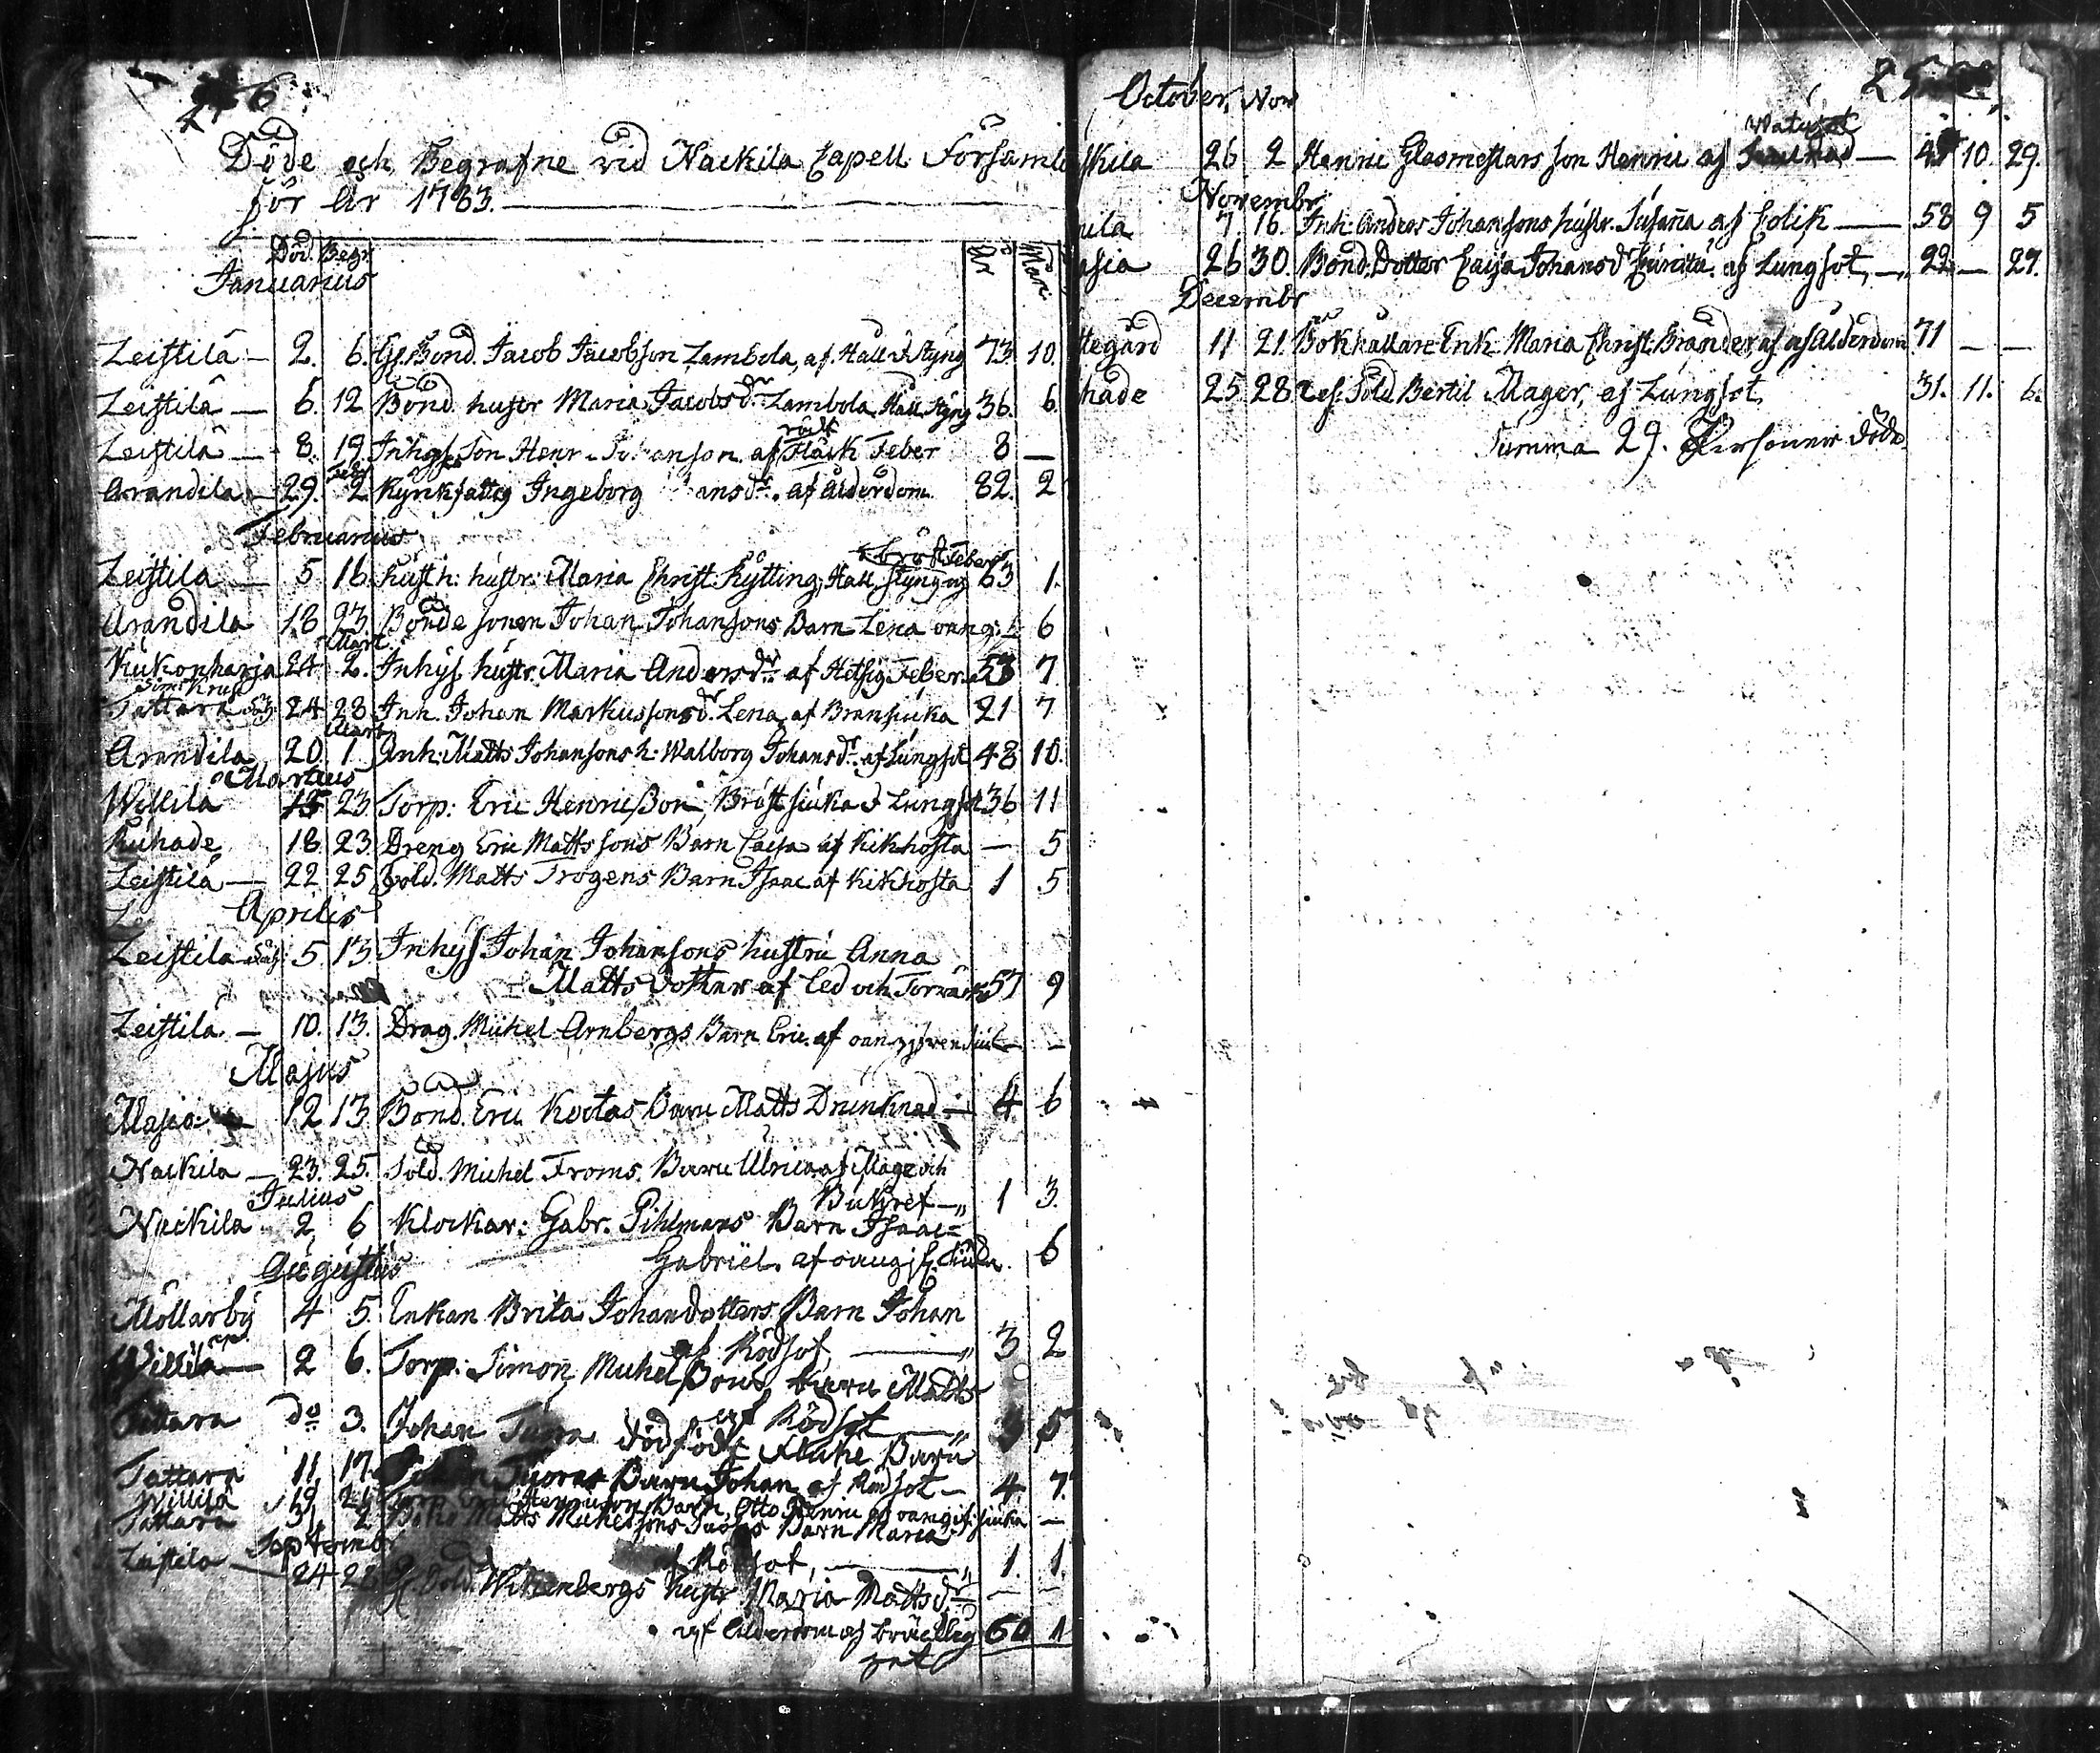 Döde och Begrafne vid Nackila Capell Församl
för År 1783.
Död. Begr. År Mån.
Januarius
Leistilä — 2. 6. Gl. Bond. Jacob Jacobson Lambola, af Håll o Styng 73 10.
Leistilä — 6. 12 Bond. hustr Maria Jacobsdr. Lambola Håll Styng 36. 6.
Leistilä — 8. 19. Inhys Son Henr. af Fläck Feber 8 —
Arandila — 29. 2 Feb. Kyrkfattig Ingeborg ansdr. af ålderdom 82. 2
Februarius
Bröst Feber
Leistilä — 5 16. hustr: Maria Christ. Håll Styng og 63 1.
Arandila 18 23 Bonde sonen Johan Johansons Barn Lena oang: 6
Mart.
Kukonharja 24 2. Inhys hustr. Maria Andersdr. af Hetsig Feber 53 7
Tattara 24 28 Inh. Johan Markussons d. Lena af Bransiuka 21 7
Mart.
Arandila 20. 1 Inh: Matts Johansons h: Walborg Johansdr. af Lungsot 48 10.
Martius
Willila 15 23. Torp: Eric Henricsson, Bröstsiuka o Lungsot 36 11
Ruhade 18 23 Dreng Eric Mattssons Barn Caisa af Kikhosta — 5
Leistilä — 22 25 Sold. Matts Trogens Barn Isaac af Kikhosta 1 5
Aprilis
Leistila 5 13 Inhys Johan Johansons hustru Anna
Matts dotter af Led och Torrwärk 57 9
Leistilä — 10. 13. Drag. Michel Arnbergs Barn Eric. af — —
Majus
Masia — 12 13 Bond. Eric Koctas barn Matts Drunknad — 4 6
Nackila — 23. 25. Sold. Michel Froms. Barn Ulrica af Mage och
Bukref — 1 3.
Julius
Nackila 2 6 Klockar: Gabr. Pihlmans Barn Isaac
Gabriel. af oangif. siuka. 6
Augustus
Mollarby 4 5. Enkan Brita Johansdotters Barn Johan
af Rödsot, — 3 2
Willila — 2 6. Torp: Simon Michelssons barn Matts
af Rödsot — 5
Tattara do 3. Johan Tuora dödfödt Flicke Barn
Tattara 11 17. Tuoras Barn Johan af Rödsot — 4 7.
Willila 19 24 Torp. Eric Barn Otto Henric af oangif: siuka —
Tattara 31 2 Matts Michelsons Barn Maria
September
af Rödsot, — 1. 1.
Leistila — 24 28 Gl. Sold. Wittenbergs hustr Maria Mattsdr. — —
af ålderdom och bräcklig 60 1
het
October, Nov
skila 26 2 Henric Glasmestars son Henric af Watusot — 10. 29.
Novembr.
uila 7. 16. Inh. Anders Johansons hustr. Susanna af Colik — 58 9 5
asia 26 30. Bond. Dotter Caisa Johansd af Lungsot, — 22 — 27.
Decembr
tegård 11 21. Bokhållare Enk. Maria Christ. Brander, af Ålderdom 71 — —
hade 25 28 Ref. Sold. Bertil Mager, af Lungsot, 31. 11. 6.
Summa 29. Personer döde